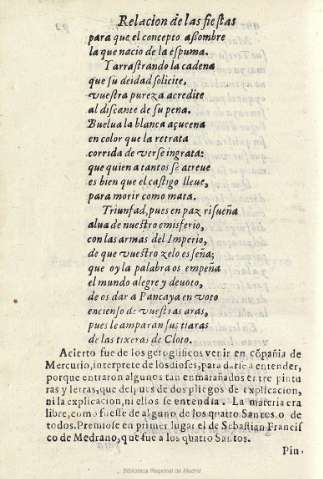 Relacion de las fiestas
para que el concepto assombre
la que nacio de la espuma.
Y arrastrando la cadena
que su deidad solicite,
vuestra pureza acredite
al discante de su pena.
Buelua la blanca açucena
en color que la retrata
corrida de verse ingrata:
que quien a tantos se atreue
es bien que el castigo lleue,
para morir como mata.
Triunfad, pues en paz risueña
alua de nuestro emisferio,
con las armas del Imperio,
de que vuestro zelo es seña;
que oy la palabra os empeña
el mundo alegre y deuoto,
de os dar a Pancaya en voto
encienso de vuestras aras,
pues le amparan sus tiaras
de las tixeras de Cloto.
Acierto fue de los geroglificos venir en cõpañia de
Mercurio, interprete de los dioses, para darse a entender,
porque entraron algunos tan enmarañados entre pintu
ras y letras, que despues de dos pliegos de explicacion,
ni la explicacion, ni ellos se entendia. La materia era
libre, como fuesse de alguno de los quatro Santos, o de
todos. Premiose en primer lugar el de Sebastian Francis
co de Medrano, que fue a los quatro Santos.
Pin-
Biblioteca Regional de Madrid